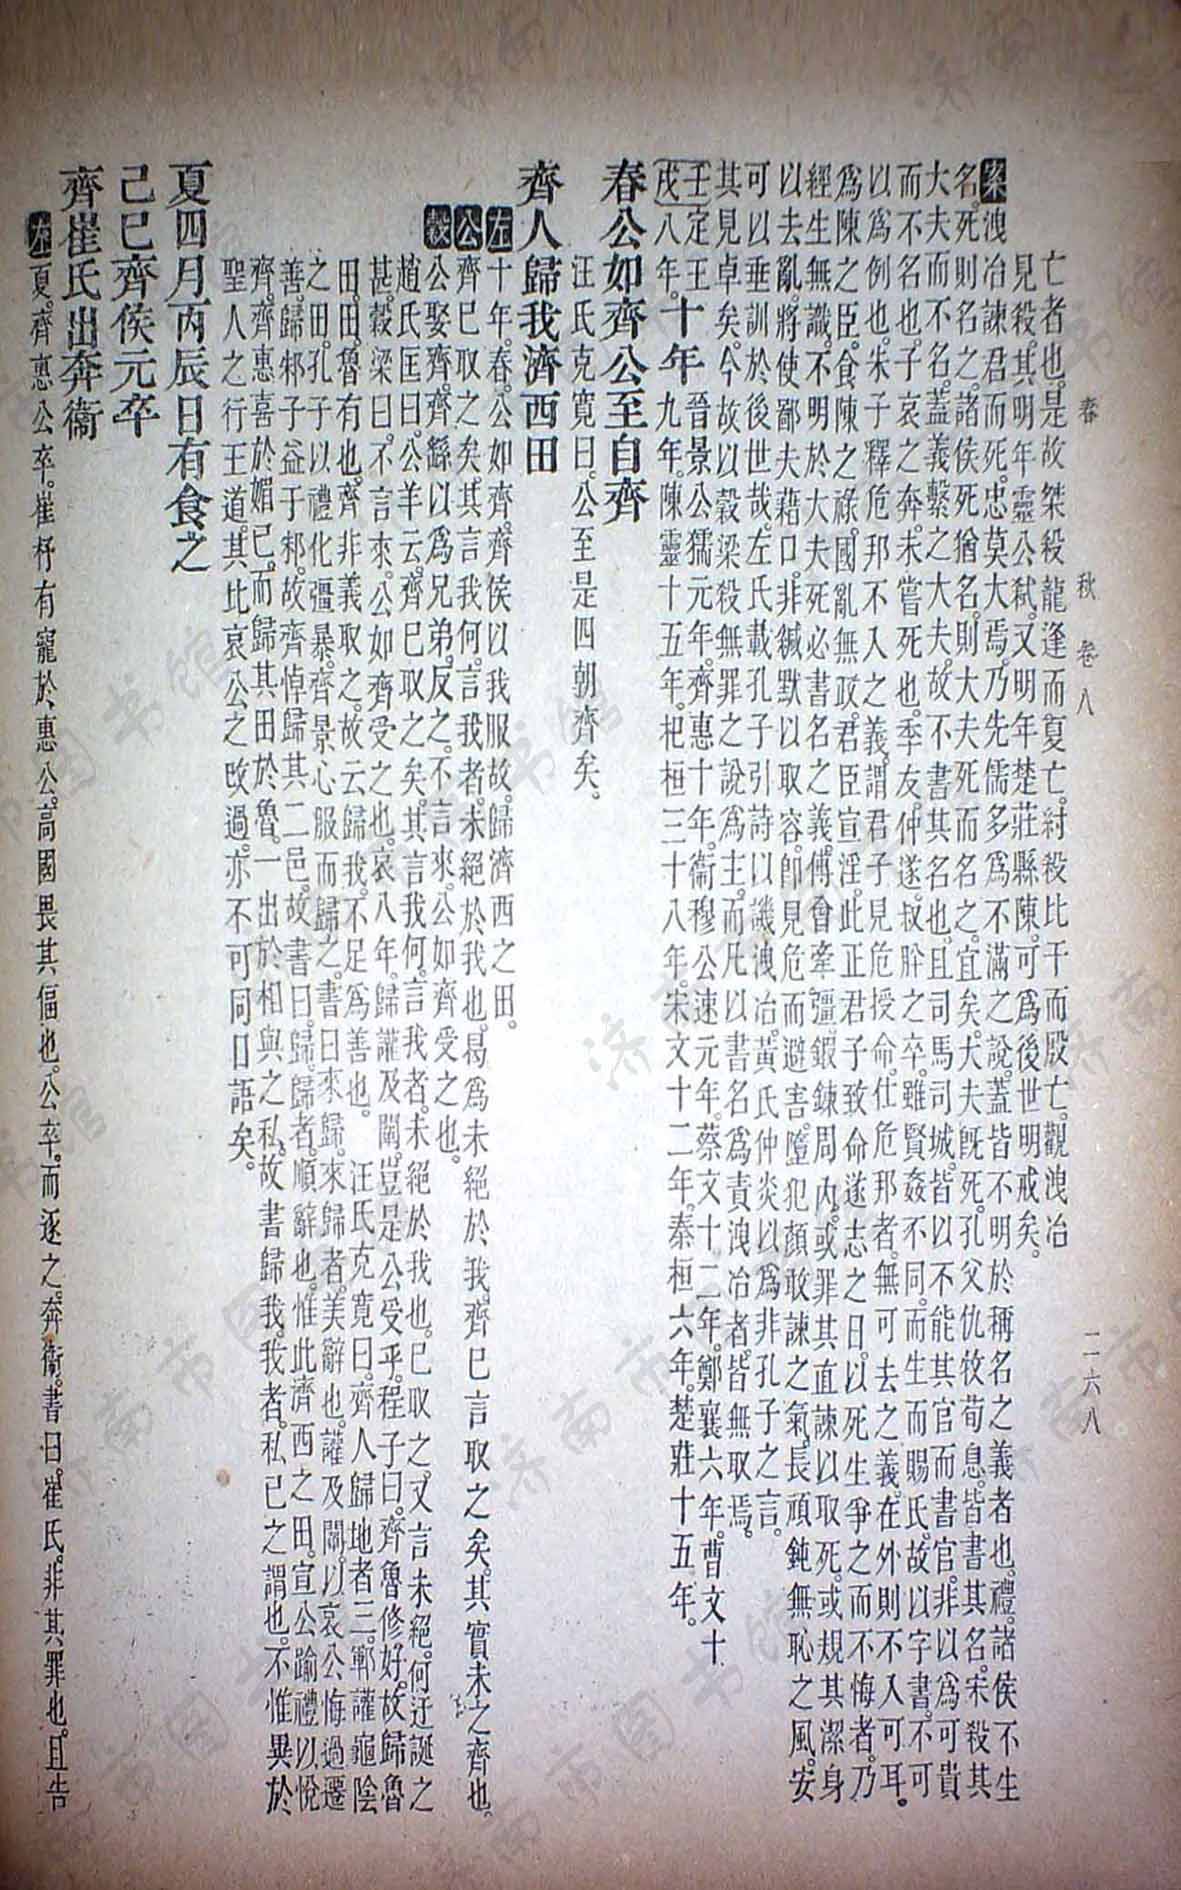 春 秋 卷八 二六八
亡者也。是故桀殺龍逢而夏亡。紂殺比干而殷亡。觀洩冶
見殺。其明年靈公弒。又明年楚莊縣陳。可爲後世明戒矣。
案 洩冶諫君而死。忠莫大焉。乃先儒多爲不滿之說。蓋皆不明於稱名之義者也。禮。諸侯不生
名。死則名之。諸侯死猶名。則大夫死而名之。宜矣。大夫旣死。孔父仇牧荀息。皆書其名。宋殺其
大夫而不名。蓋義繫之大夫。故不書其名也。且司馬司城。皆以不能其官而書官。非以爲可貴
而不名也。子哀之奔。未嘗死也。季友。仲遂。叔肸之卒。雖賢姦不同。而生而賜氏。故以字書。不可
以爲例也。朱子釋危邦不入之義。謂君子見危授命。仕危邦者。無可去之義。在外則不入可耳。
爲陳之臣。食陳之祿。國亂無政。君臣宣淫。此正君子致命遂志之日。以死生爭之而不悔者。乃
經生無識。不明於大夫死必書名之義。傅會牽彊。鍛鍊周內。或罪其直諫以取死。或規其潔身
以去亂。將使鄙夫藉口。非緘默以取容。卽見危而避害。墮犯顏敢諫之氣。長頑鈍無恥之風。安
可以垂訓於後世哉。左氏載孔子引詩以譏洩冶。黃氏仲炎以爲非孔子之言。
其見卓矣。今故以穀梁殺無罪之說爲主。而凡以書名爲責洩冶者。皆無取焉。
壬戌 定王八年。十年 晉景公獳元年。齊惠十年。衞穆公速元年。蔡文十二年。鄭襄六年。曹文十
九年。陳靈十五年。杞桓三十八年。宋文十二年。秦桓六年。楚莊十五年。
春公如齊公至自齊
汪氏克寬曰。公至是四朝齊矣。
齊人歸我濟西田
左 十年。春。公如齊。齊侯以我服故。歸濟西之田。
公 齊已取之矣。其言我何。言我者。未絕於我也。曷爲未絕於我。齊已言取之矣。其實未之齊也。
穀 公娶齊。齊繇以爲兄弟。反之。不言來。公如齊受之也。
趙氏匡曰。公羊云。齊已取之矣。其言我何。言我者。未絕於我也。已取之。又言未絕。何迂誕之
甚。穀梁曰。不言來。公如齊受之也。哀八年。歸讙及闡。豈是公受乎。程子曰。齊魯修好。故歸魯
田。田。魯有也。齊非義取之。故云歸我。不足爲善也。 汪氏克寬曰。齊人歸地者三。鄆讙龜陰
之田。孔子以禮化彊暴。齊景心服而歸之。書曰來歸。來歸者。美辭也。讙及闡。以哀公悔過遷
善。歸邾子益于邾。故齊悼歸其二邑。故書曰歸。歸者。順辭也。惟此濟西之田。宣公踰禮以悅
齊。齊惠喜於媚己。而歸其田於魯。一出於相與之私。故書歸我。我者。私己之謂也。不惟異於
聖人之行王道。其比哀公之攺過。亦不可同日語矣。
夏四月丙辰日有食之
己巳齊侯元卒
齊崔氏出奔衞
左 夏。齊惠公卒。崔杼有寵於惠公。高國畏其偪也。公卒。而逐之。奔衞。書曰。崔氏。非其罪也。且告